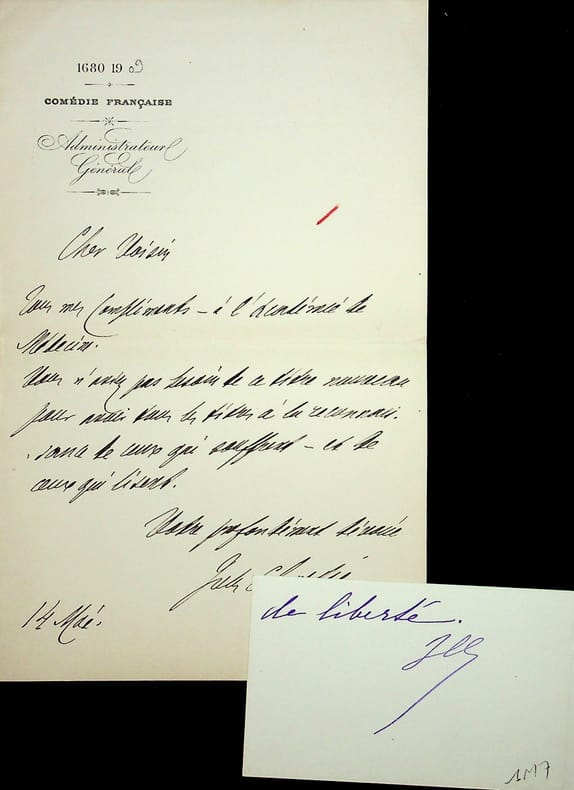 1680 19 09
COMÉDIE FRANÇAISE
Administrateur
Général
Cher Voisin
Tous mes compliments – à l'Académie de
Médecine.
Vous n'aviez pas besoin de ce titre nouveau
pour avoir tous les titres à la reconnais-
sance de ceux qui souffrent – et de
ceux qui lisent.
Votre profondément dévoué
Jules Claretie
14 Mai.
de liberté.